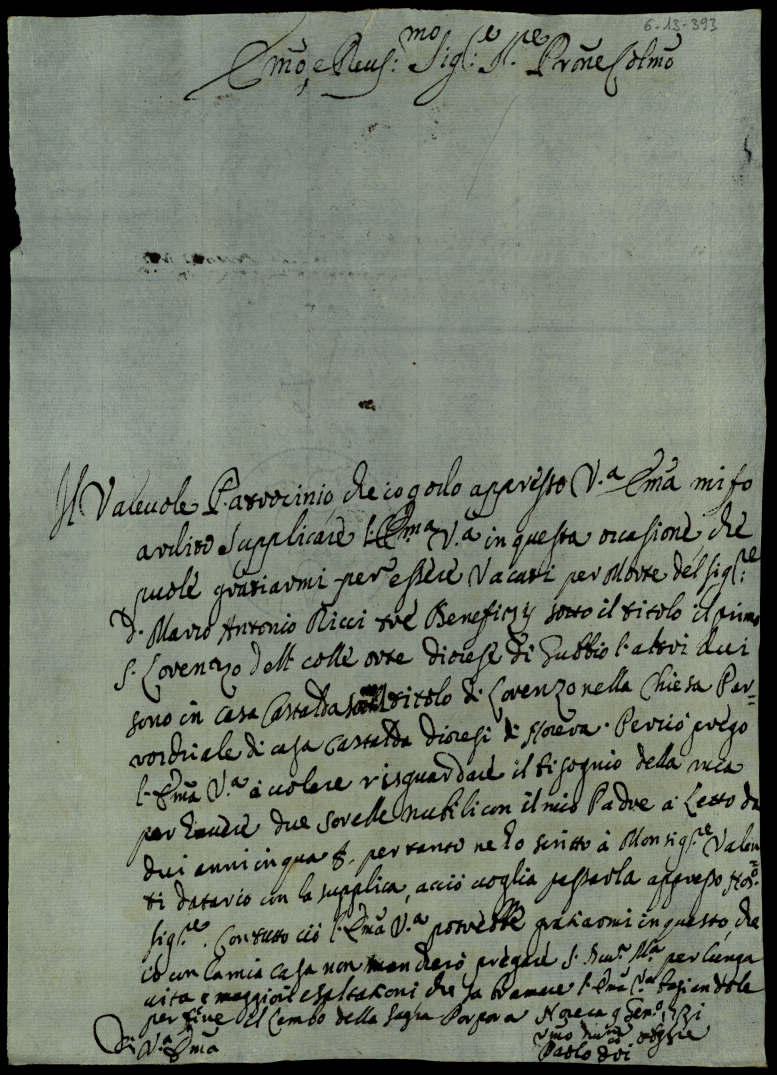 6-13-393
Emo, e Reu: mo Sig:re P.rone Colmo
Il Valeuole Patrocinio che io godo appresso V.a Ema mi fo
ardito Supplicare l'Ema V.a in questa occasione, che
puole gratiarmi per essere Vacati per Morte del Sig:re
D. Marco Antonio Ricci tre Beneficij sotto il titolo il primo
S. Lorenzo colle diocese di Gubbio l'altri dui
sono in casa Castalda titolo di Lorenzo nella Chiesa Par=
rochiale di casa Castalda diocesi di Nocera. Perciò prego
l'Ema V.a à uolere risguardare il bisognio della mia
per hauere due Sorelle nubili con il mio Padre à Letto da
dui anni in qua per tanto ne ho scritto à Monsig.re Valen=
ti datario con la supplica, acciò uoglia passarla appresso
Sig.re. Con tutto ciò l'Ema V.a potrebbe gratiarmi in questo, che
io con la mia casa non mancherò pregare S. per lunga
uita e maggiori esaltationi che sa bramare l'Ema V.a baciandole
per fine il Lembo della Sagra Porpora Nocera 9 Gen.o 1731
Di V.a Ema
Paolo